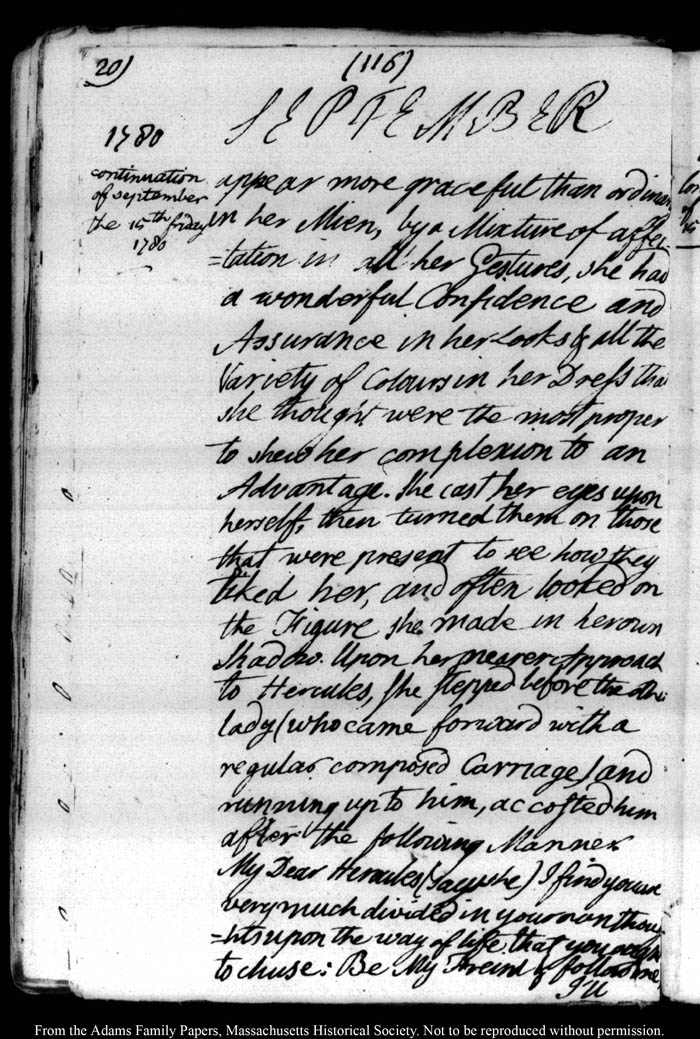 20)
(116)
1780
SEPTEMBER
continuation
of september
the 15th friday
1780
appear more graceful than ordina
in her Mien, by a Mixture of affec
=tation in all her Gestures, she had
a wonderful Confidence and
Assurance in her Looks & all the
Variety of Colours in her Dress that
she thought were the most proper
to shew her complexion to an
Advantage. she cast her eyes upon
herself, then turned them on those
that were present to see how they
liked her, and often looked on
the Figure she made in her own
Shadow. Upon her nearer Approach
to Hercules, she stepped before the othe
lady (who came forward with a
regular composed Carriage) and
running up to him, accosted him
after the following Manner
My Dear Hercules (says she) I find you are
very much divided in your own thou
=hts upon the way of life that you ought
to chuse: Be My Freind & follow me
I'll
From the Adams Family Papers, Massachusetts Historical Society. Not to be reproduced without permission.